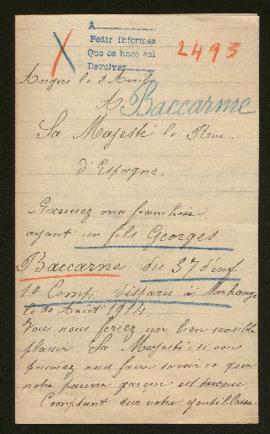 A
Pedir informes
Que se hace así
Devolver
2493
Angers le 2 Avril
A
Baccarne
Sa Majesté le Roi
d'Espagne.
Excusez ma franchise
ayant un fils Georges
Baccarne du 37 d'inf
10 Comp, disparu à Morhange
le 20 Août 1914
Vous nous feriez un bien sensible
plaisir Sa Majesté si vous
pouviez nous faire savoir ce que
notre pauvre garçon est devenu.
Comptant sur votre gentillesse